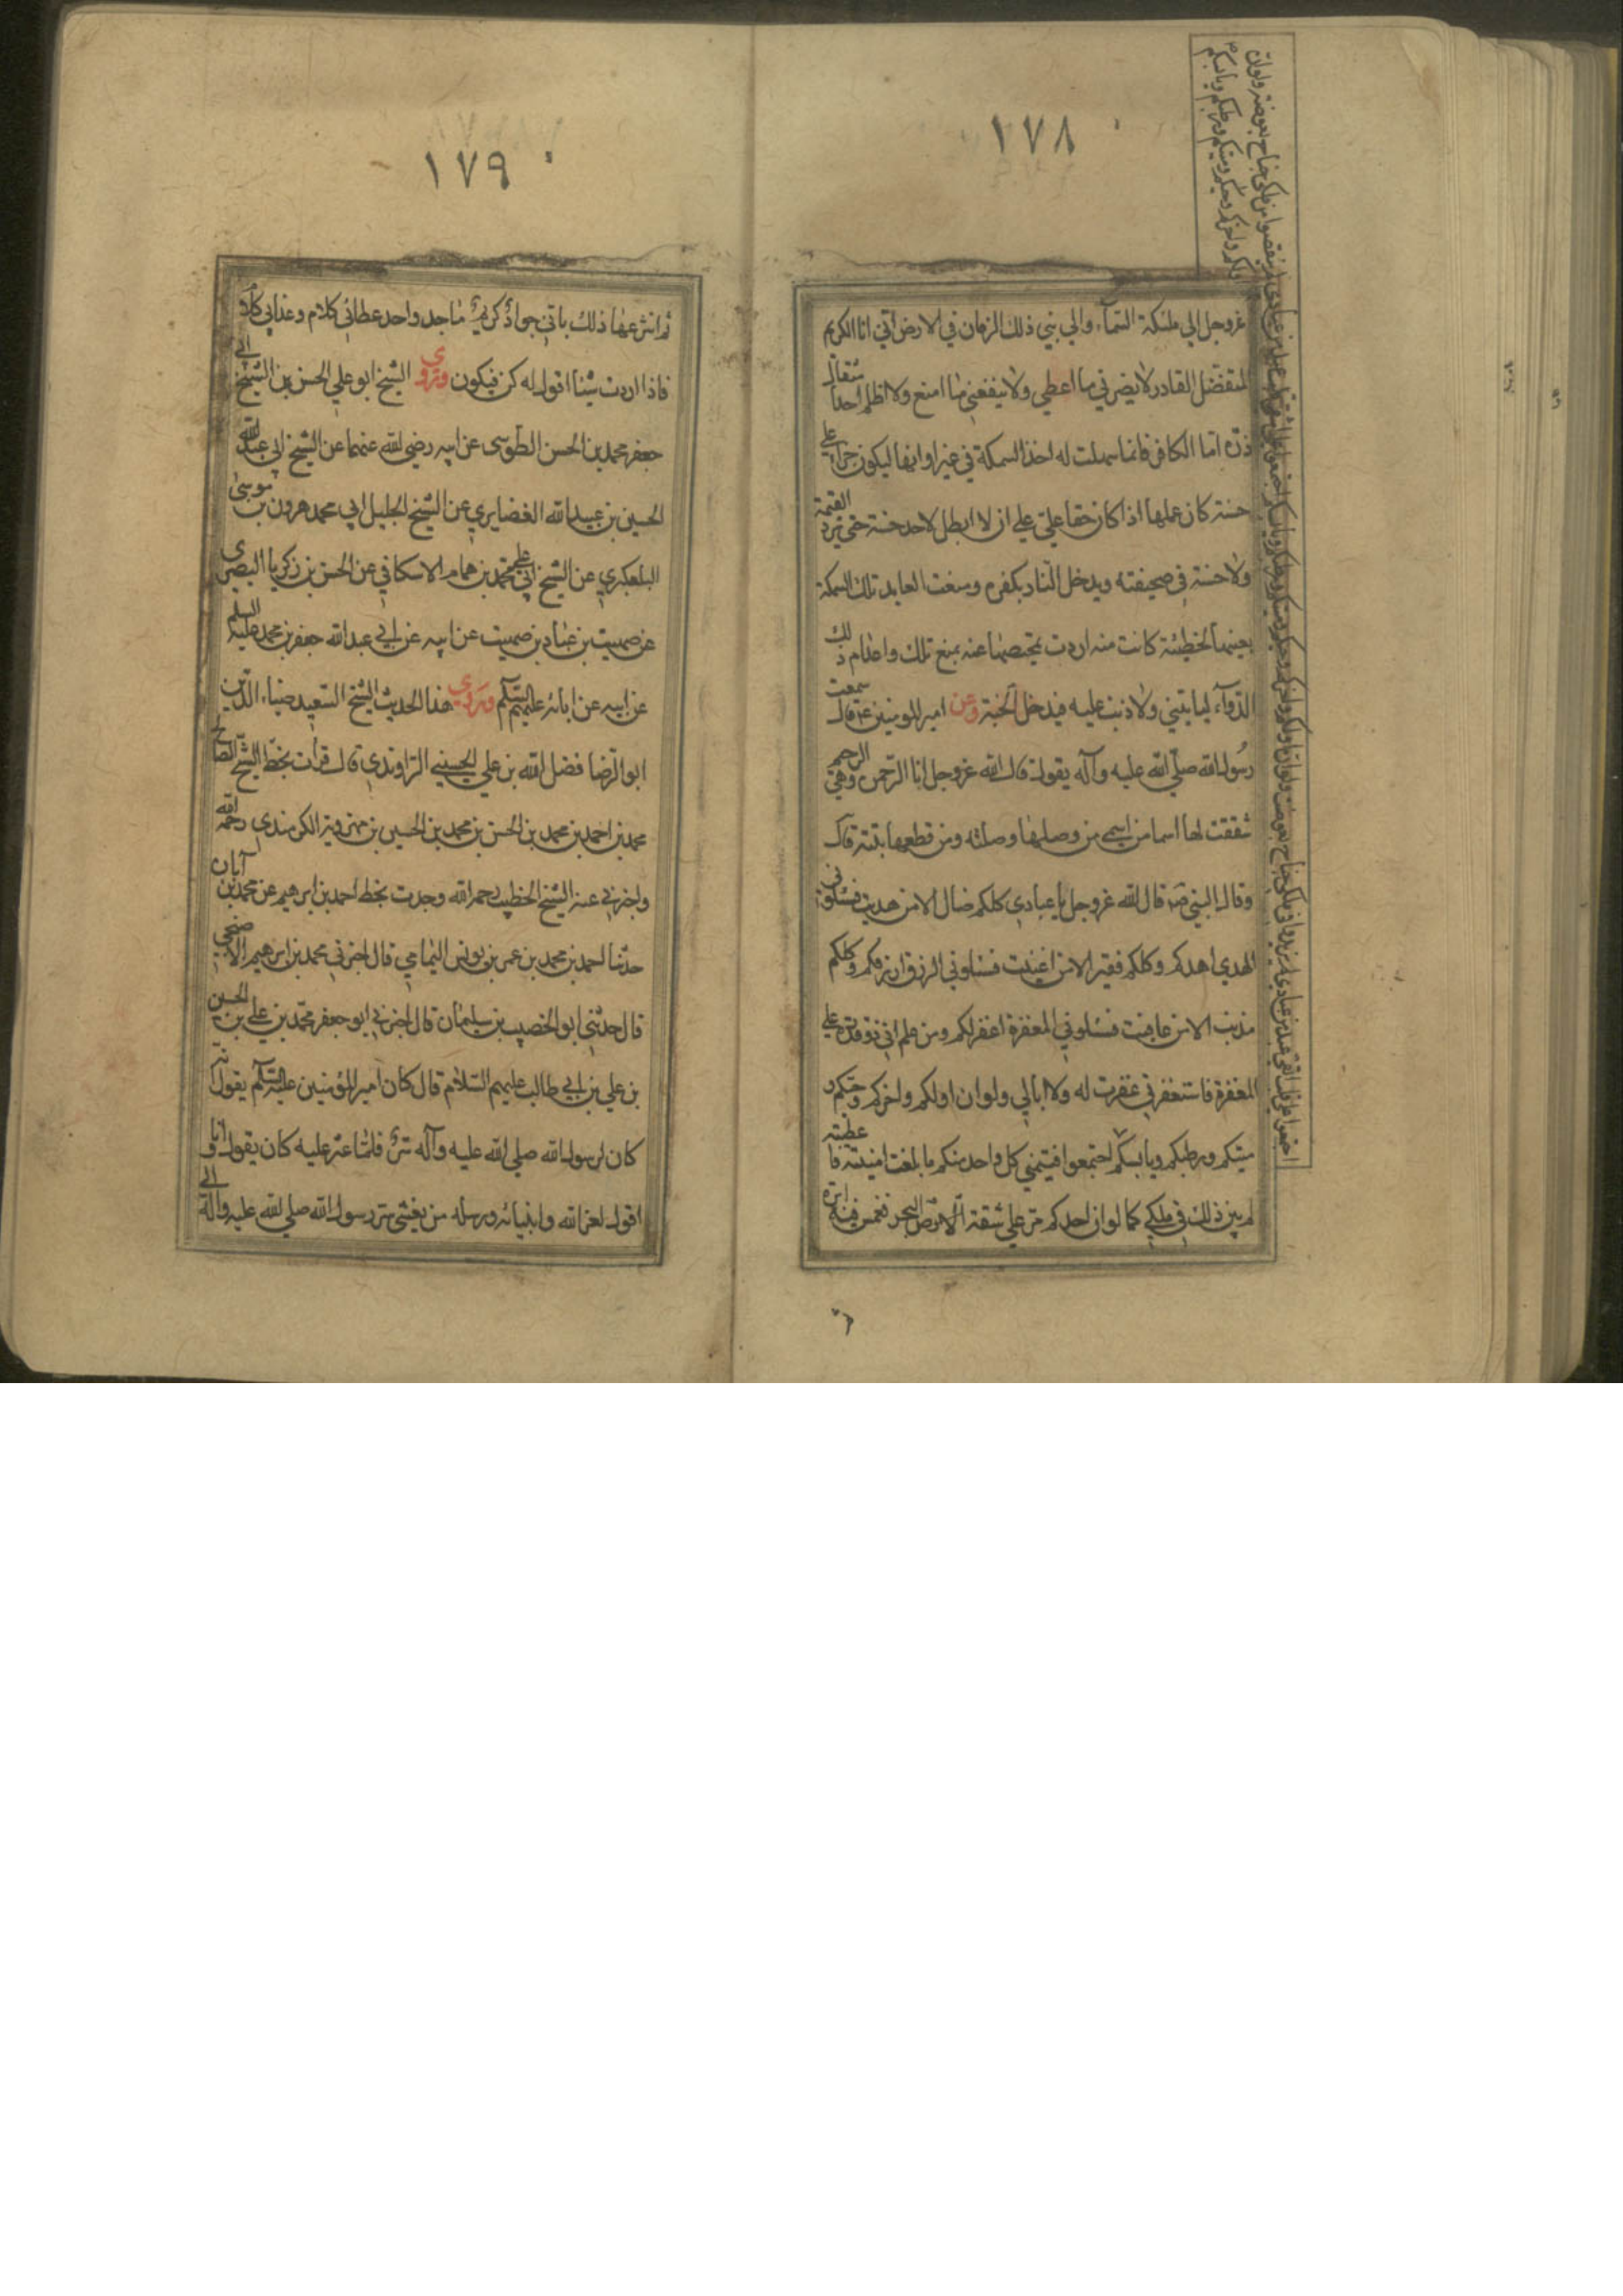 ١٧٨
عزوجل الي ملئكة السمآء والي نبي ذلك الزمان في الارض اني انا الكريم
المتفضل القادر لا يضرني ما اعطي ولا ينفعني ما امنع ولا اظلم احدا مثقال
ذرة اما الكافر فانما سهلت له اخذ السمكة في غير اوانها ليكون جزاء علي
حسنة كان عملها اذا كان حقا علي ان لا ابطل لاحد حسنة حتي يرد القيمة
ولا حسنة في صحيفته ويدخل النار بكفره ومنعت العابد تلك السمكة
بعينها لخطيئة كانت منه اردت تمحيصها عنه بمنع تلك واعدام ذلك
الدوآء ليأتيني ولا ذنب عليه فيدخل الجنة وعن امير المومنين ع قال سمعت
رسول الله صلي الله عليه وآله يقول قال الله عزوجل انا الرحمن وهي الرحم
شققت لها اسما من اسمي من وصلها وصلته ومن قطعها بتته قال
وقال النبي ص قال الله عزوجل يا عبادي كلكم ضال الا من هديت فسئلوني
الهدي اهدكم وكلكم فقير الا من اغنيت فسئلوني الرزق ارزقكم وكلكم
مذنب الا من عافيت فسئلوني المغفرة اغفر لكم ومن علم اني ذو قدرة علي
المغفرة فاستغفرني غفرت له ولا ابالي ولو ان اولكم واخركم وحيكم و
ميتكم ورطبكم ويابسكم اجتمعوا فيتمني كل واحد منكم ما بلغت امنيته فاعطيته
لم يبين ذلك في ملكي كما لو ان احدكم مر علي شفة البحر فغمس فيه ابرة
١٧٩
ثم انتزعها ذلك باني جواد كريم ماجد واحد عطائي كلام وعذابي كلام
فاذا اردت شيئا اقول له كن فيكون وروي الشيخ ابو علي الحسن بن الشيخ ابي
جعفر محمد بن الحسن الطوسي عن ابيه رضي الله عنهما عن الشيخ ابي عبد الله
الحسين بن عبيد الله الغضايري عن الشيخ الجليل ابي محمد هرون بن موسي
التلعكبري عن الشيخ ابي علي محمد بن همام الاسكافي عن الحسن بن زكريا البصري
عن صهيب بن عباد بن صهيب عن ابيه عن ابي عبد الله جعفر بن محمد عليه السلم
عن ابيه عن ابائه عليهم السلام وروي هذا الحديث الشيخ السعيد ضياء الدين
ابو الرضا فضل الله بن علي الحسيني الراوندي قال قرأت بخط الشيخ الصالح
محمد بن احمد بن محمد بن الحسن بن محمد بن الحسين بن مهرويه الكرمندي رحمه الله
واخبرني عنه الشيخ الخطيب رحمه الله وجدت بخط احمد بن ابرهيم عن محمد بن آبان
حدثنا احمد بن محمد بن عمر بن يونس اليمامي قال اخبرني محمد بن ابرهيم الاصبحي
قال حدثني ابو الخصيب بن سليمان قال اخبرني ابو جعفر محمد بن علي بن الحسين
بن علي بن ابي طالب عليهم السلام قال كان امير المؤمنين عليه السلام يقول انه
كان لرسول الله صلي الله عليه وآله سر قلما عثر عليه كان يقول وانا
اقول لعن الله وانبيائه ورسله من يفشي سر رسول الله صلي الله عليه وآله الي